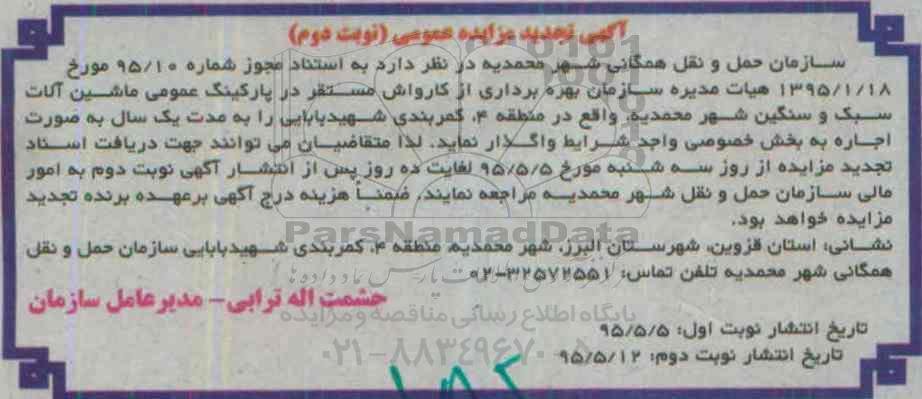 آگهی تجدید مزایده عمومی (نوبت دوم)
سازمان حمل و نقل همگانی شهر محمدیه در نظر دارد به استناد مجوز شماره ۹۵/۱۰ مورخ
۱۳۹۵/۱/۱۸ هیات مدیره سازمان بهره برداری از کارواش مستقر در پارکینگ عمومی ماشین آلات
سبک و سنگین شهر محمدیه، واقع در منطقه ۴، کمربندی شهیدبابایی را به مدت یک سال به صورت
اجاره به بخش خصوصی واجد شرایط واگذار نماید. لذا متقاضیان می توانند جهت دریافت اسناد
تجدید مزایده از روز سه شنبه مورخ ۹۵/۵/۵ لغایت ده روز پس از انتشار آگهی نوبت دوم به امور
مالی سازمان حمل و نقل شهر محمدیه مراجعه نمایند. ضمناً هزینه درج آگهی برعهده برنده تجدید
مزایده خواهد بود.
نشانی: استان قزوین، شهرستان البرز، شهر محمدیه، منطقه ۴، کمربندی شهیدبابایی سازمان حمل و نقل
همگانی شهر محمدیه تلفن تماس: ۳۲۵۷۲۵۵۱-۰۲
حشمت اله ترابی- مدیرعامل سازمان
تاریخ انتشار نوبت اول: ۹۵/۵/۵
تاریخ انتشار نوبت دوم: ۹۵/۵/۱۲
ParsNamadData
پایگاه اطلاع رسانی مناقصه و مزایده
۰۲۱-۸۸۳۴۹۶۷۰